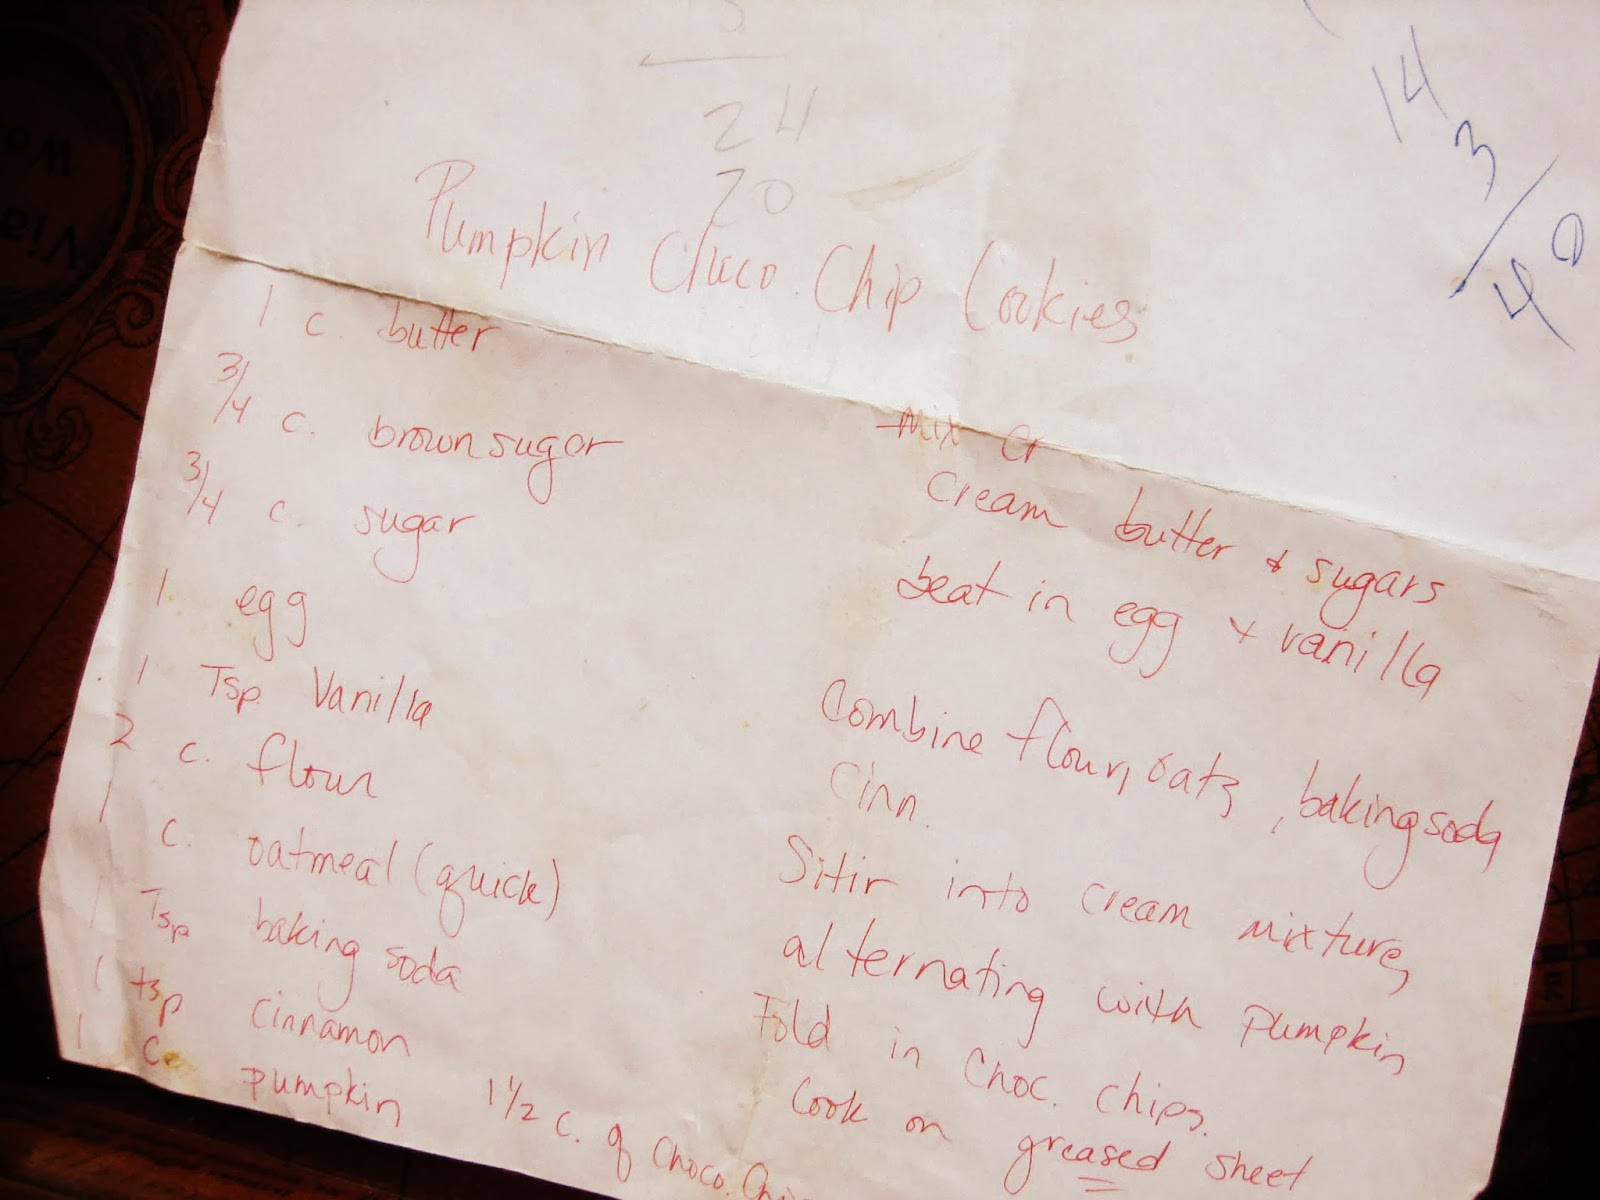 24
70
14
3/40
Pumpkin Choco. Chip Cookies
1 c. butter
3/4 c. brown sugar
3/4 c. sugar
1 egg
1 Tsp. Vanilla
2 c. flour
1 c. oatmeal (quick)
1 Tsp baking soda
1 tsp cinnamon
1 c. pumpkin
1 1/2 c. of Choco.
Mix Cr
Cream butter & sugars
beat in egg & vanilla
Combine flour, oats, baking soda
Cinn.
Sitir into cream mixture,
alternating with pumpkin
Fold in choc. chips.
Cook on greased sheet